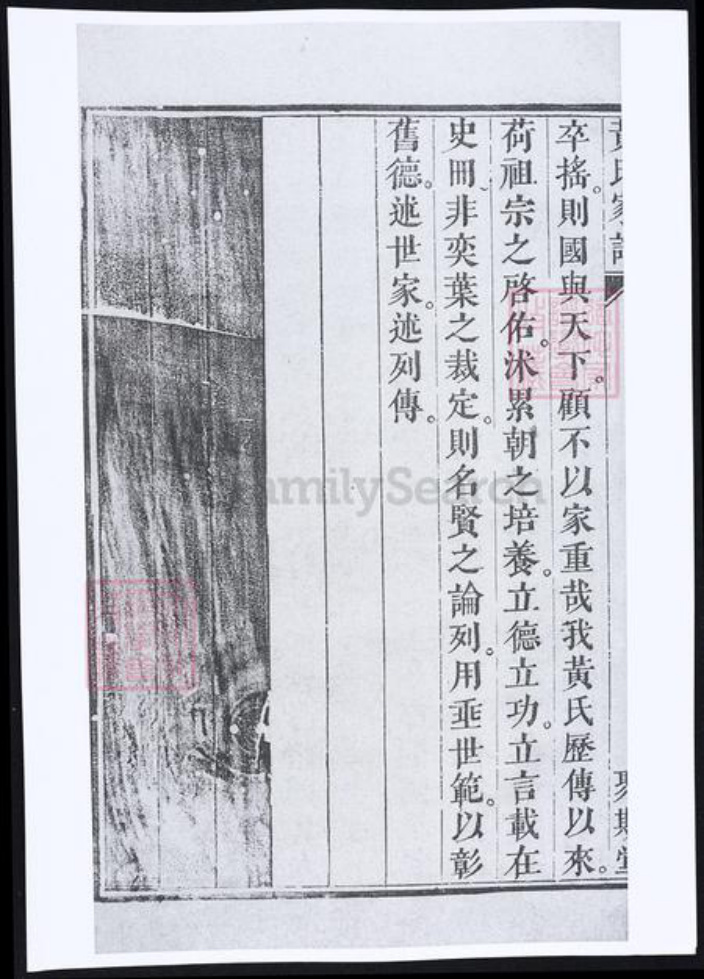 黃氏家譜
卒搖。則國與天下。顧不以家重哉我黃氏歷傳以來。
荷祖宗之啓佑。沐累朝之培養。立德立功。立言載在
史冊、非奕葉之裁定。則名賢之論列。用垂世範。以彰
舊德。述世家。述列傳。
FamilySearch